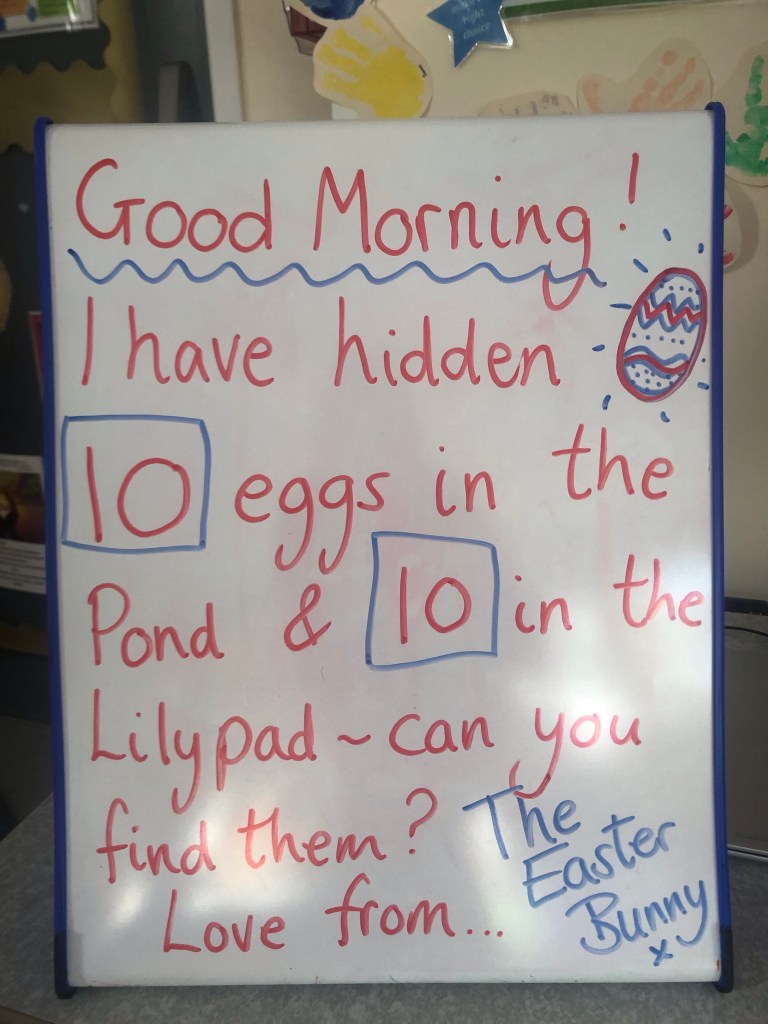 Good Morning!
I have hidden
10 eggs in the
Pond & 10 in the
Lilypad ~ can you
find them?
Love from...
The
Easter
Bunny
x
right
choice